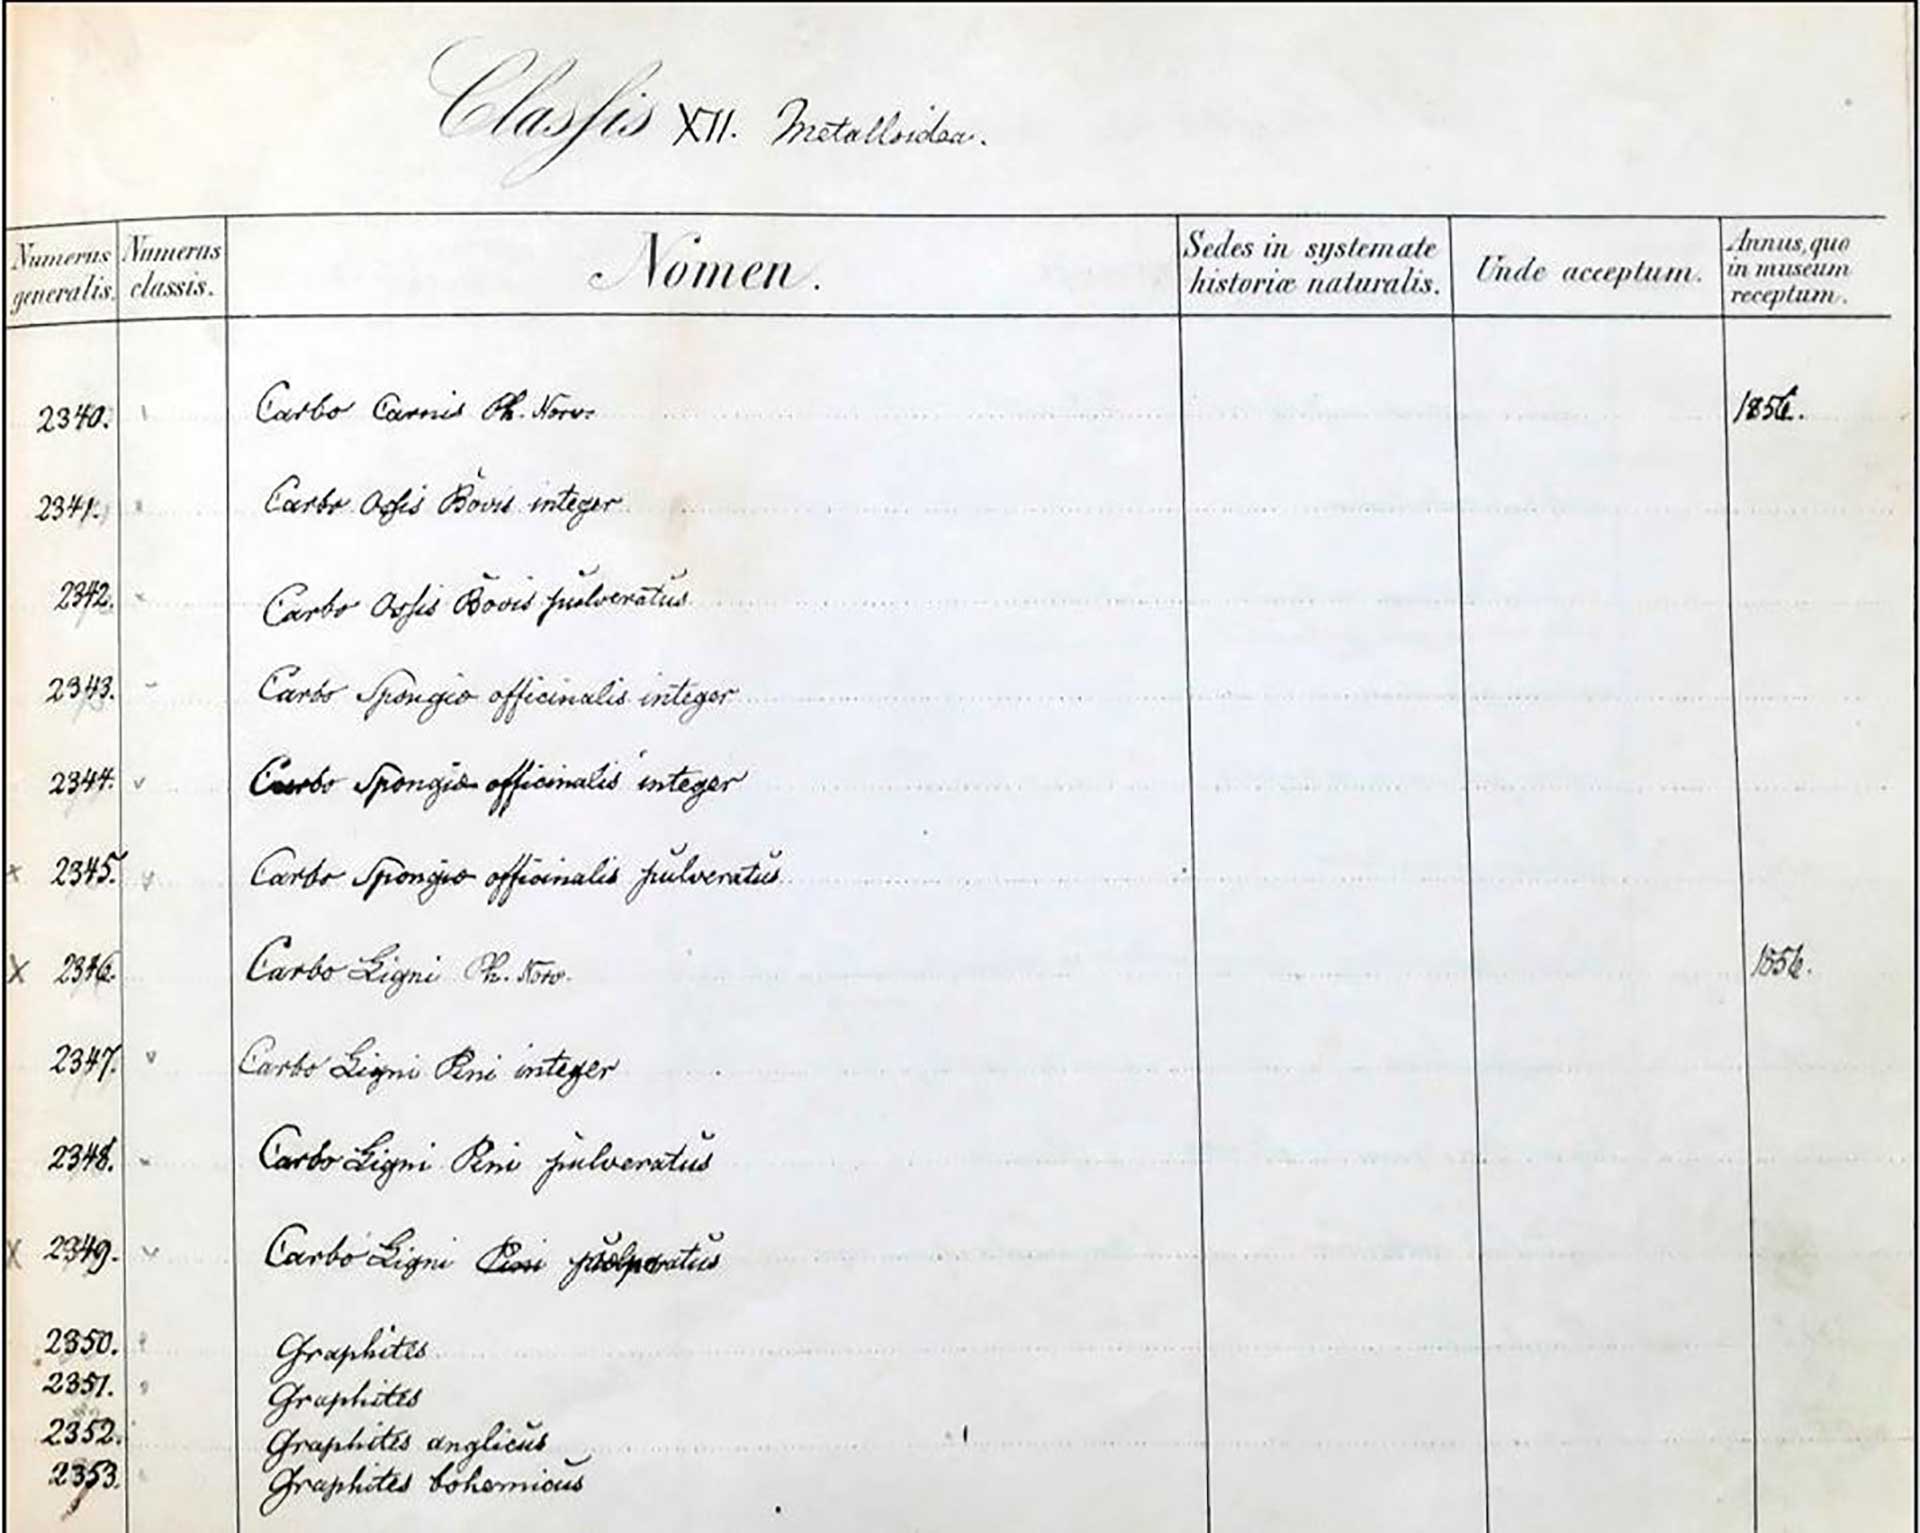 Classis XII. Metalloidea.
Numerus generalis. Numerus classis. Nomen. Sedes in systemate historiæ naturalis. Unde acceptum. Annus, quo in museum receptum.
2340. Carbo Carnis Ph. Norv. 1856.
2341. Carbo Ossis Bovis integer
2342. Carbo Ossis Bovis pulveratus
2343. Carbo Spongiæ officinalis integer
2344. Carbo Spongiæ officinalis integer
x 2345. v Carbo Spongiæ officinalis pulveratus
X 2346. Carbo Ligni Ph. Norv. 1856.
2347. v Carbo Ligni Pini integer
2348. Carbo Ligni Pini pulveratus
X 2349. v Carbo Ligni Pini
2350. Graphites
2351. Graphites
2352. Graphites anglicus
2353. Graphites bohemicus